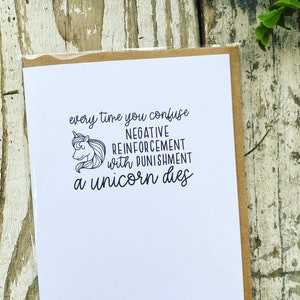 every time you confuse
NEGATIVE
REINFORCEMENT
with PUNISHMENT
a unicorn dies